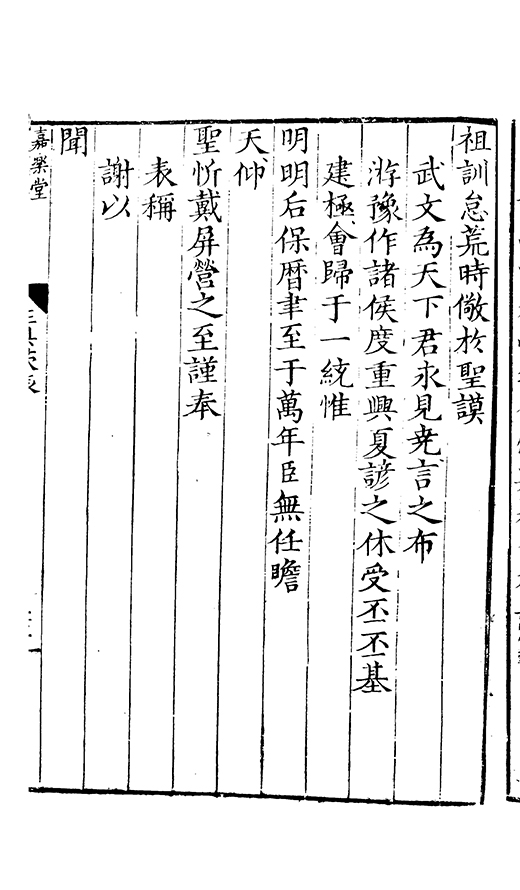 祖訓怠荒時儆於聖謨
武文為天下君永見尭言之布
游豫作諸侯度重興夏諺之休受丕丕基
建極會歸于一統惟
明明后保曆聿至于萬年臣無任瞻
天仰
聖忻戴屏營之至謹奉
表稱
謝以
聞
嘉樂堂